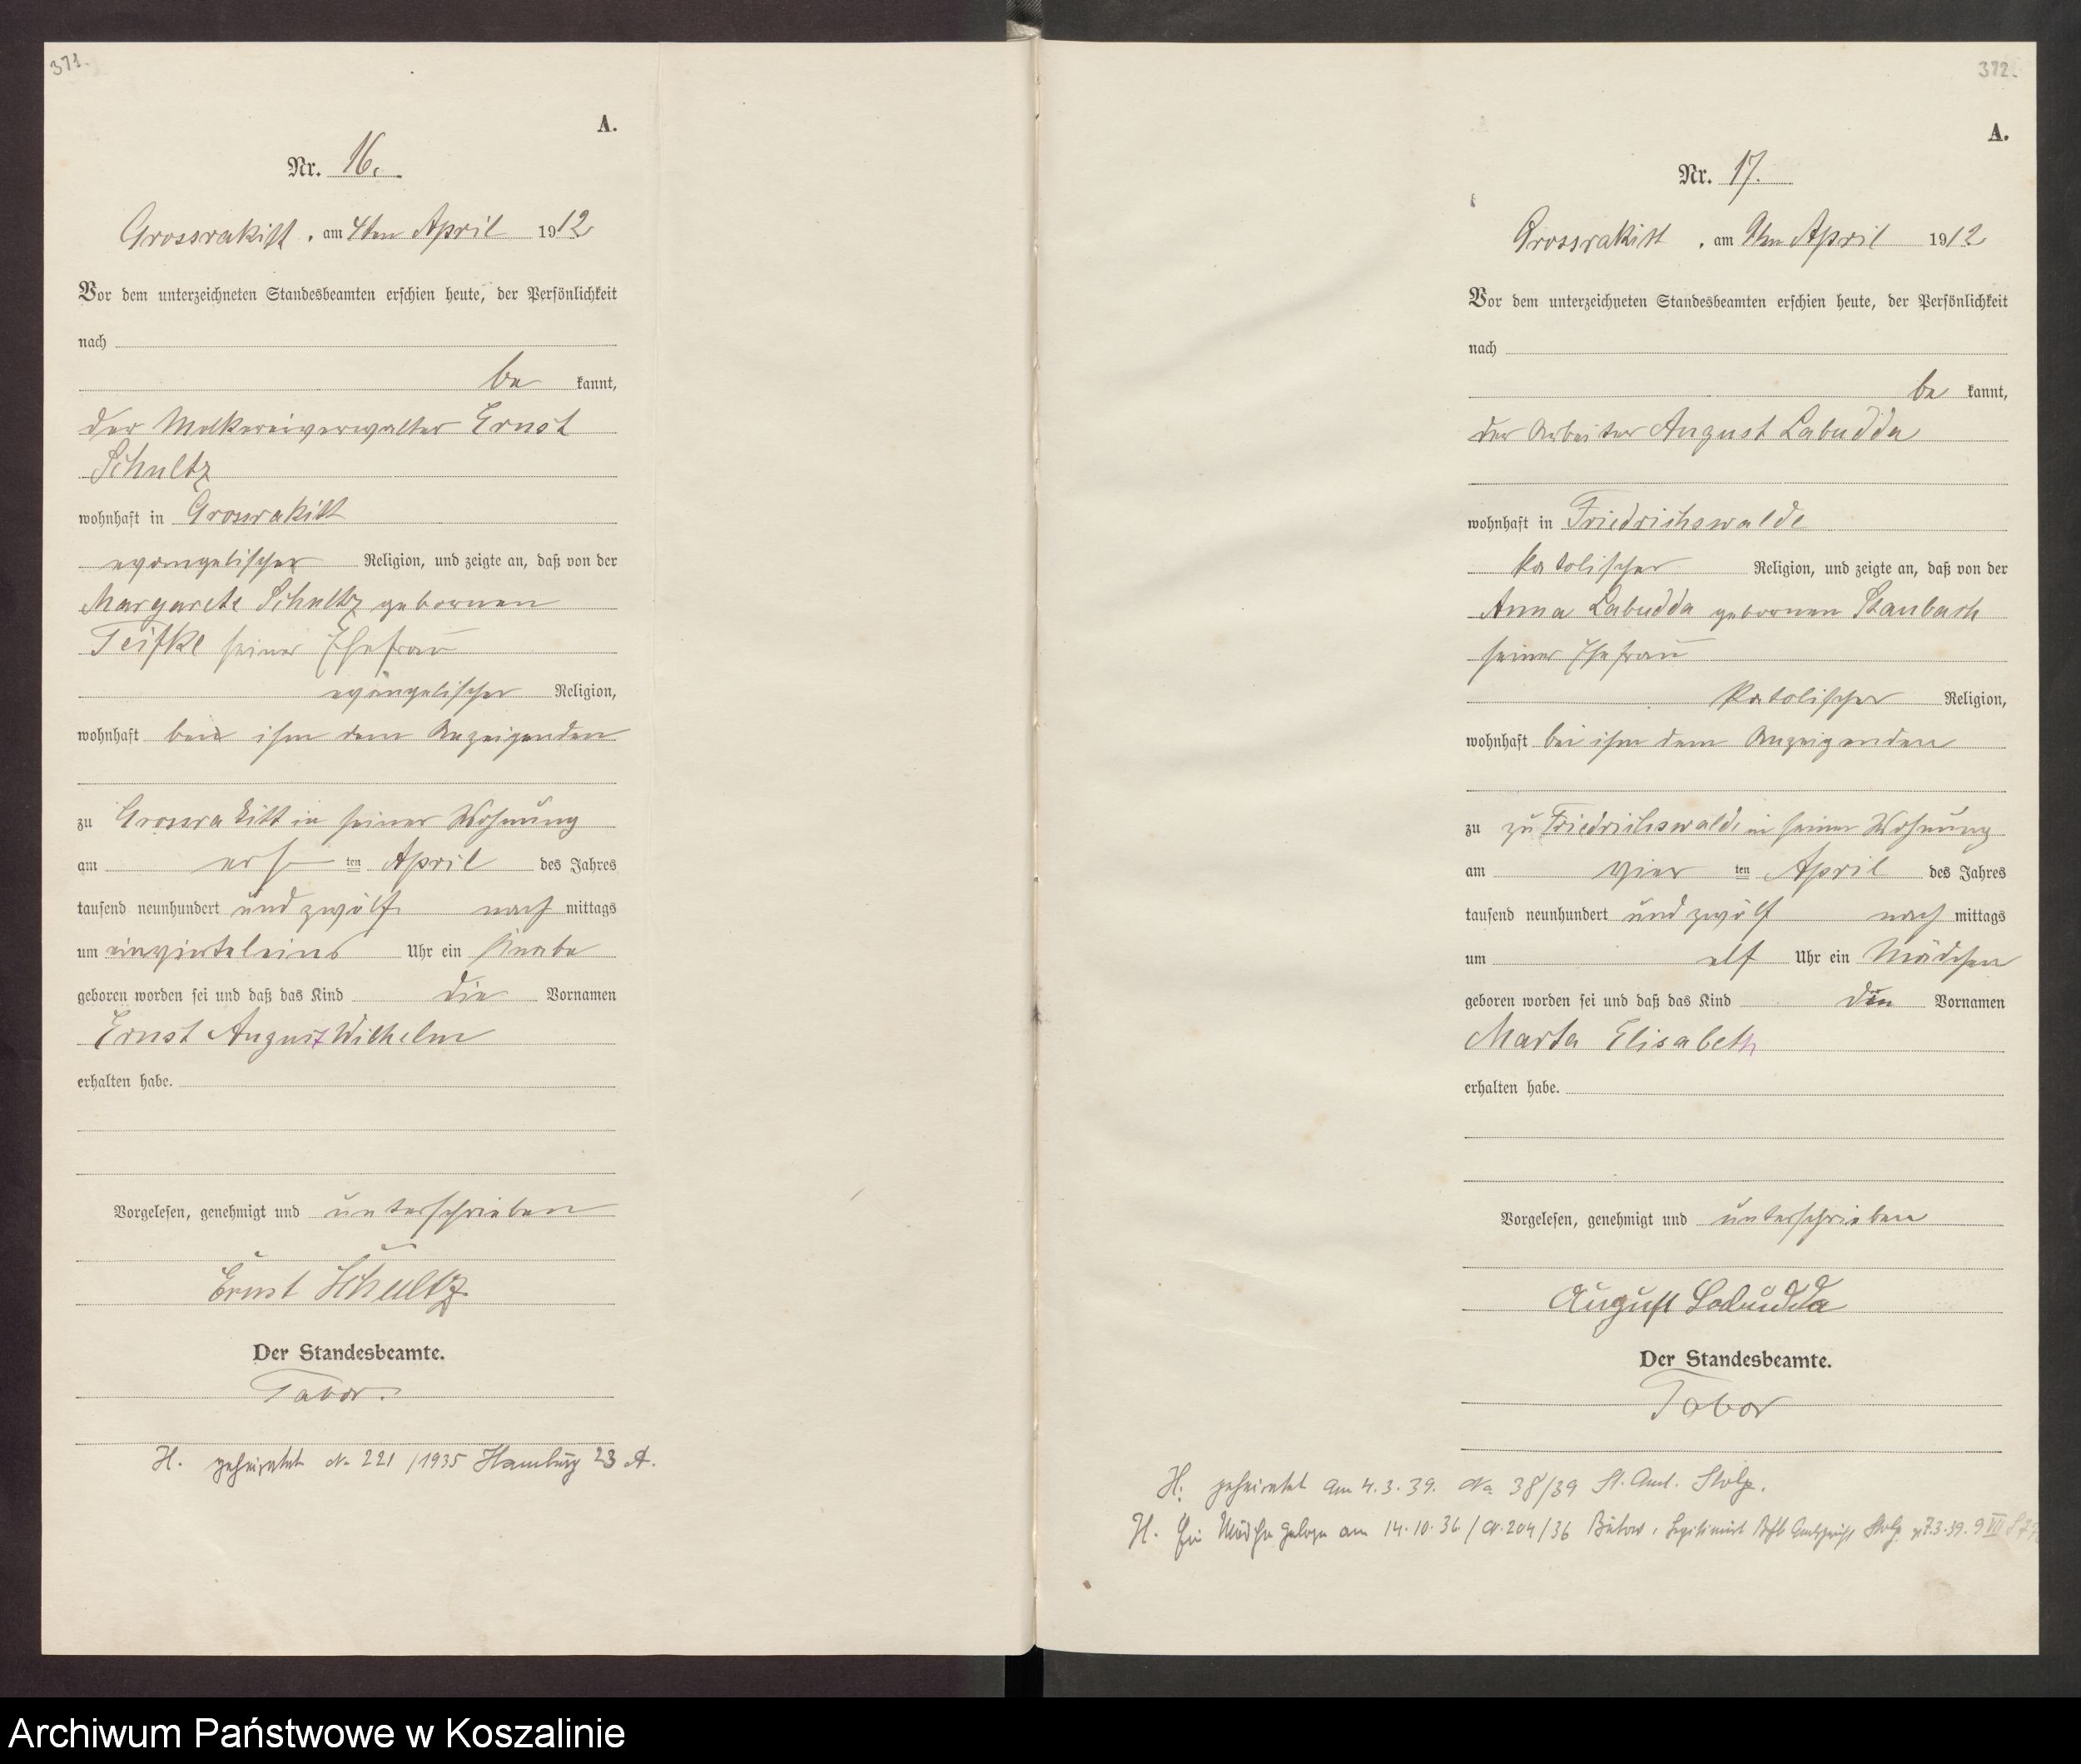 371.
A.
Nr. 16.
Grossrakitt, am 4ten April 1912
Vor dem unterzeichneten Standesbeamten erschien heute, der Persönlichkeit
nach
be kannt,
der Molkereiverwalter Ernst
Schultz
wohnhaft in Grossrakitt
evangelischer Religion, und zeigte an, daß von der
Margarete Schultz gebornen
Teifke seiner Ehefrau
evangelischer Religion,
wohnhaft bei ihm dem Anzeigenden
zu Grossrakitt in seiner Wohnung
am ersten April des Jahres
tausend neunhundert und zwölf nach mittags
um einvierteleins Uhr ein Knabe
geboren worden sei und daß das Kind die Vornamen
Ernst August Wilhelm
erhalten habe.
Vorgelesen, genehmigt und unterschrieben
Ernst Schultz
Der Standesbeamte.
Tabor.
H. geheiratet No 221/1935 Hamburg 23 A.
372.
A.
Nr. 17.
Grossrakitt, am April 1912
Vor dem unterzeichneten Standesbeamten erschien heute, der Persönlichkeit
nach
be kannt,
der Arbeiter August Labudda
wohnhaft in Friedrichswalde
katolischer Religion, und zeigte an, daß von der
Anna Labudda gebornen Staubach
seiner Ehefrau
katolischer Religion,
wohnhaft bei ihm dem Anzeigenden
zu zu Friedrichswalde in seiner Wohnung
am vier ten April des Jahres
tausend neunhundert und zwölf nach mittags
um elf Uhr ein Mädchen
geboren worden sei und daß das Kind die Vornamen
Marta Elisabeth
erhalten habe.
Vorgelesen, genehmigt und unterschrieben
August Labudda
Der Standesbeamte.
Tabor
H: geheiratet am 4.3.39. No 38/39 St. Amt. Stolp.
H. Ein Mädchen am 14.10.36 / No 204/36 Bütow, Legitimiert Amtsgericht Stolp
Archiwum Państwowe w Koszalinie